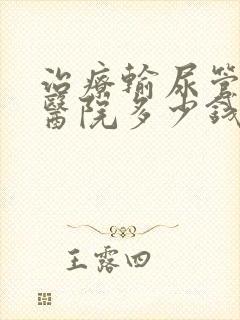 治療輸尿管
醫院多少錢
王露四